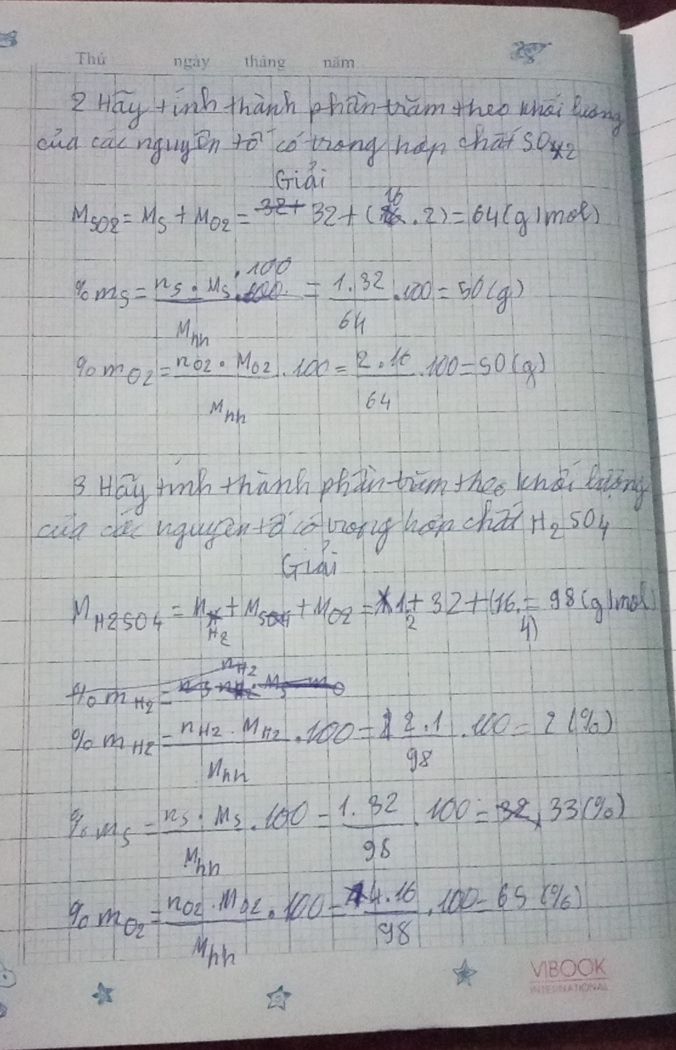 Thứ ngày tháng năm
2 Hãy tính thành phần trăm theo khối lượng
của các nguyên tố có trong hợp chất SO2
Giải
M SO2 = MS + MO2 = 32 + (16 . 2) = 64 (g/mol)
%mS = nS . MS . 100 / Mhh = 1.32 / 64 . 100 = 50 (g)
%mO2 = nO2 . MO2 / Mhh . 100 = 2.16 / 64 . 100 = 50 (g)
3 Hãy tính thành phần trăm theo khối lượng
của các nguyên tố có trong hợp chất H2SO4
Giải
M H2SO4 = MH2 + MS + MO2 = 1.2 + 32 + (16.4) = 98 (g/mol)
%mH2 =
%mH2 = nH2 . MH2 / Mhh . 100 = 2.1 / 98 . 100 = 2 (%)
%mS = nS . MS / Mhh . 100 = 1.32 / 98 . 100 = 33 (%)
%mO2 = nO2 . MO2 / Mhh . 100 = 4.16 / 98 . 100 = 65 (%)
VIBOOK
INTERNATIONAL